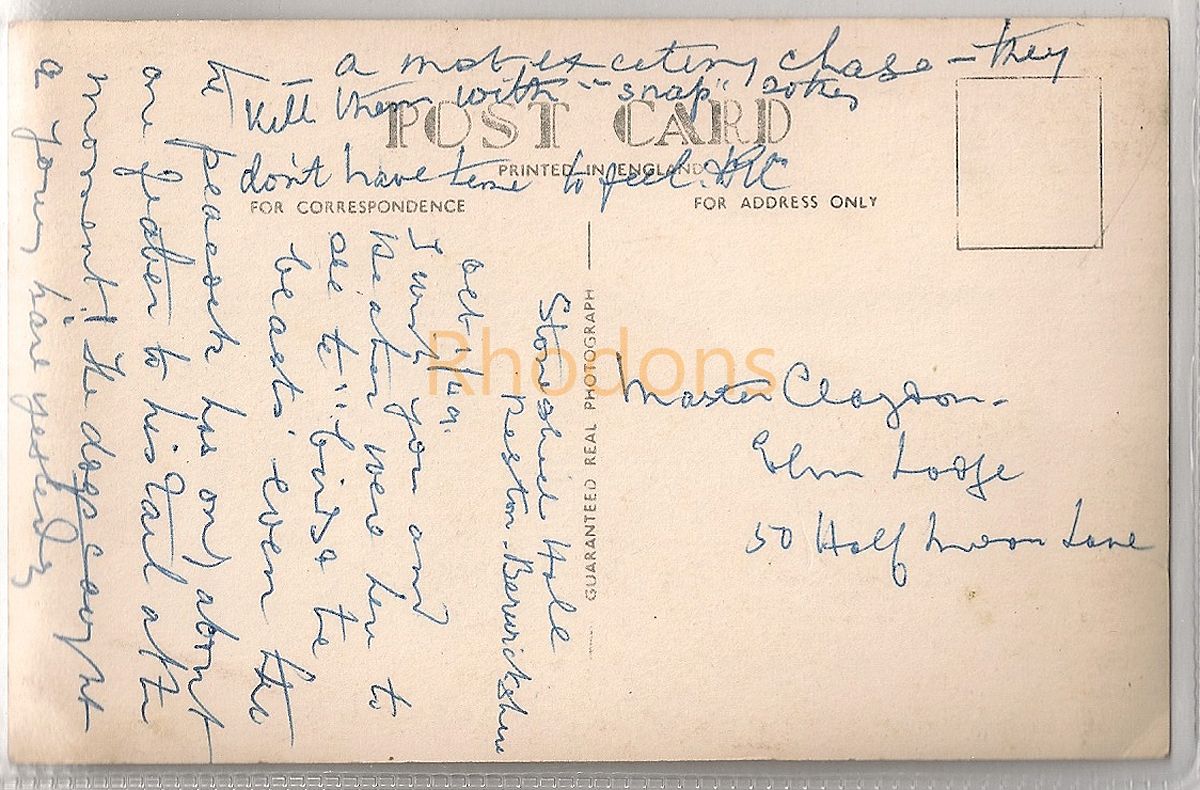 POST CARD
PRINTED IN ENGLAND
FOR CORRESPONDENCE
FOR ADDRESS ONLY
GUARANTEED REAL PHOTOGRAPH
Rhodons
Stoneshiel Hall
Reston. Berwickshire
Oct 1/49.
I wish you and
were here to
see to "birds to
beasts" even the
peacock has only about
one feather to his tail at the
moment! The dogs caught
a young hare yesterday
a most exciting chase – they
kill them with "snap" so they
don't have time to feel.
Master Claydon.
Elm Lodge
50 Half Moon Lane